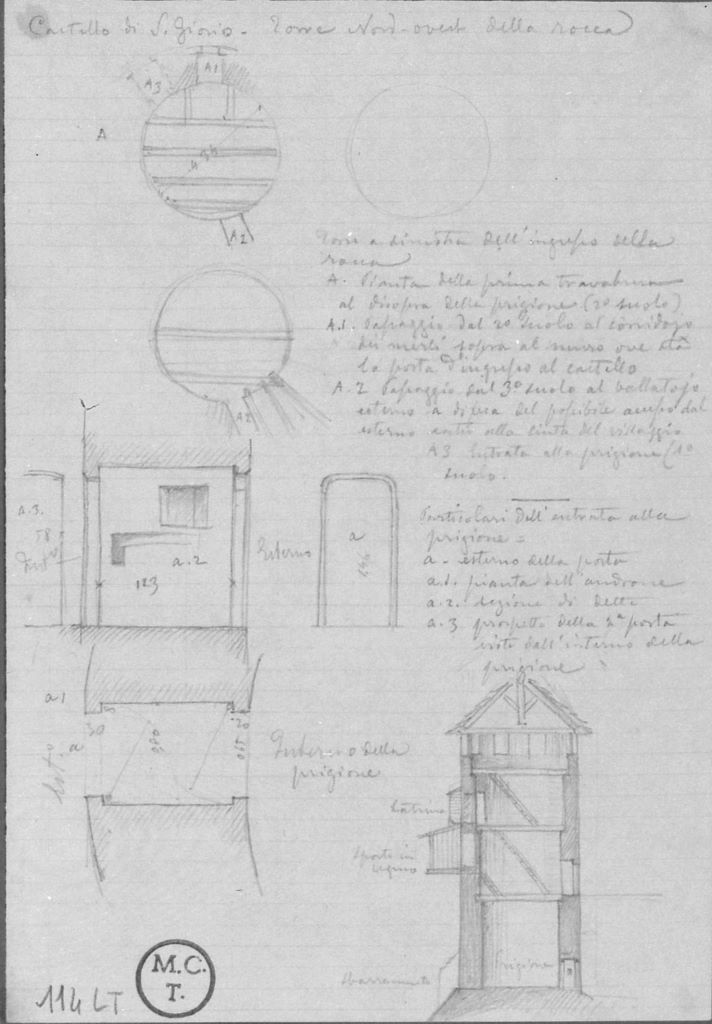 Castello di S. Giorio - Torre Nord-ovest della rocca
A1
A3
A
4.34
A2
Torre a sinistra dell'ingresso della
rocca
A. Pianta della prima travatura
al disopra della prigione (2º suolo)
A.1. Passaggio dal 2º suolo al corridojo
dei merli sopra al muro ove sta
la porta d'ingresso al castello
A.2 Passaggio dal 3º suolo al ballatojo
esterno a difesa del possibile accesso dal
esterno entro alla cinta del villaggio
A3 Entrata alla prigione (1º
suolo.
A2
a.3.
58
a.2
123
Esterno
a
Particolari dell'entrata alla
prigione =
a - esterno della porta
a.1. pianta dell'androne
a.2. sezione di detto
a.3 prospetto della 2ª porta
visto dall'interno della
prigione
a1
30
a
Interno della
prigione
Latrina
Sporto in
legno
Sbarramento
Prigione
114 LT
M.C.
T.